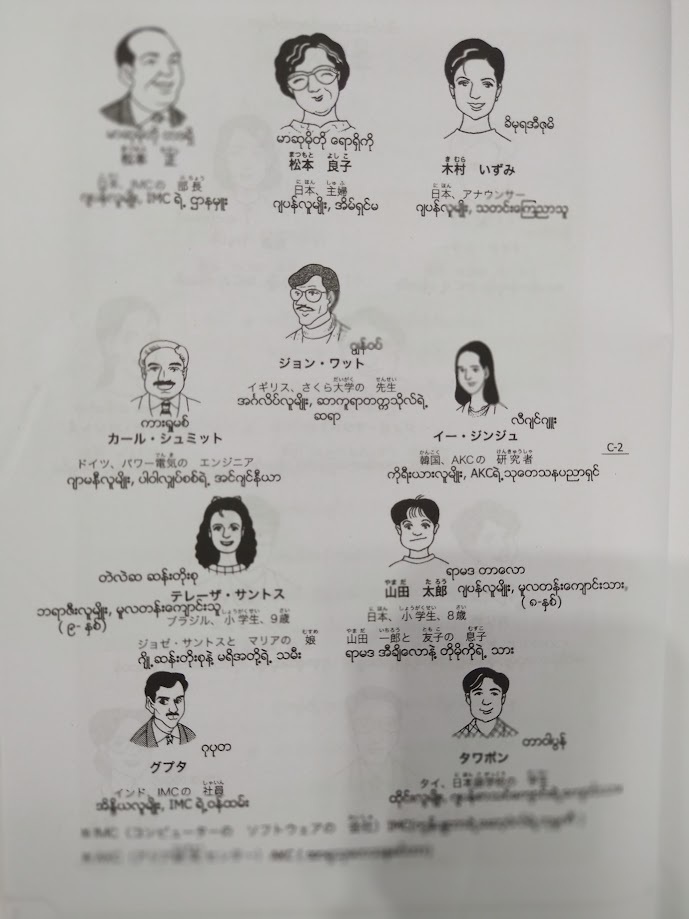 မာဆုမိုတို
松本 正
IMCの 部長
ဂျပန်လူမျိုး, IMC ရဲ့ ဌာနမှူး
မာဆုမိုတို ရောရှိကို
まつもと よしこ
松本 良子
にほん しゅふ
日本、主婦
ဂျပန်လူမျိုး, အိမ်ရှင်မ
ခိမုရအီဇုမိ
きむら
木村 いずみ
にほん
日本、アナウンサー
ဂျပန်လူမျိုး, သတင်းကြေညာသူ
ဂျွန်ဝပ်
ジョン・ワット
だいがく せんせい
イギリス、さくら大学の 先生
အင်္ဂလိပ်လူမျိုး, ဆာကူရာတက္ကသိုလ်ရဲ့
ဆရာ
ကားရှုမစ်
カール・シュミット
でんき
ドイツ、パワー電気の エンジニア
ဂျာမနီလူမျိုး, ပါဝါလျှပ်စစ်ရဲ့ အင်ဂျင်နီယာ
လီဂျင်ဂျူး
イー・ジンジュ
かんこく けんきゅうしゃ
韓国、AKCの 研究者
ကိုရီးယားလူမျိုး, AKCရဲ့သုတေသနပညာရှင်
C-2
တဲလဲဆ ဆန်းတိုးစု
テレーザ・サントス
ဘရာဇီးလူမျိုး, မူလတန်းကျောင်းသူ
(၉- နှစ်)
しょうがくせい さい
ブラジル、小学生、9歳
むすめ
ジョゼ・サントスと マリアの 娘
ဂျို့ဆန်းတိုးစုနဲ့ မရိအတို့ရဲ့ သမီး
ရာမဒ တာလော
やまだ たろう
山田 太郎
ဂျပန်လူမျိုး, မူလတန်းကျောင်းသား,
(၈-နှစ်)
にほん しょうがくせい さい
日本、小学生、8歳
やまだ いちろう ともこ むすこ
山田 一郎と 友子の 息子
ရာမဒ အီချိလောနဲ့ တိုမိုကိုရဲ့ သား
ဂုပုတ
グプタ
しゃいん
インド、IMCの 社員
အိန္ဒိယလူမျိုး, IMC ရဲ့ဝန်ထမ်း
တာဝါပွန်
タワポン
タイ、日本語学校の
ထိုင်းလူမျိုး,
※IMC（コンピューターの ソフトウェアの 会社）